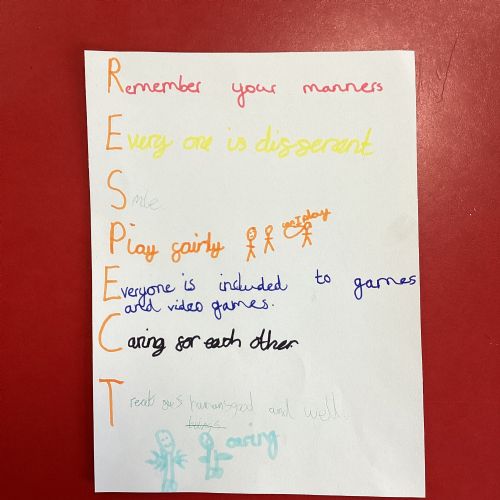 Remember your manners
Every one is disserent
Smile.
can I play
Play fairly
Everyone is included to games
and video games.
Caring for each other
Treat humans good and well.
caring